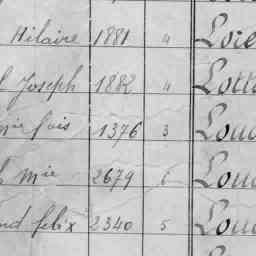 Hilaire 1881 4 Lore
Joseph 1882 4 Lott
mie fois 1376 3 Loud
mie 2679 6 Loud
nd felix 2340 5 Loud